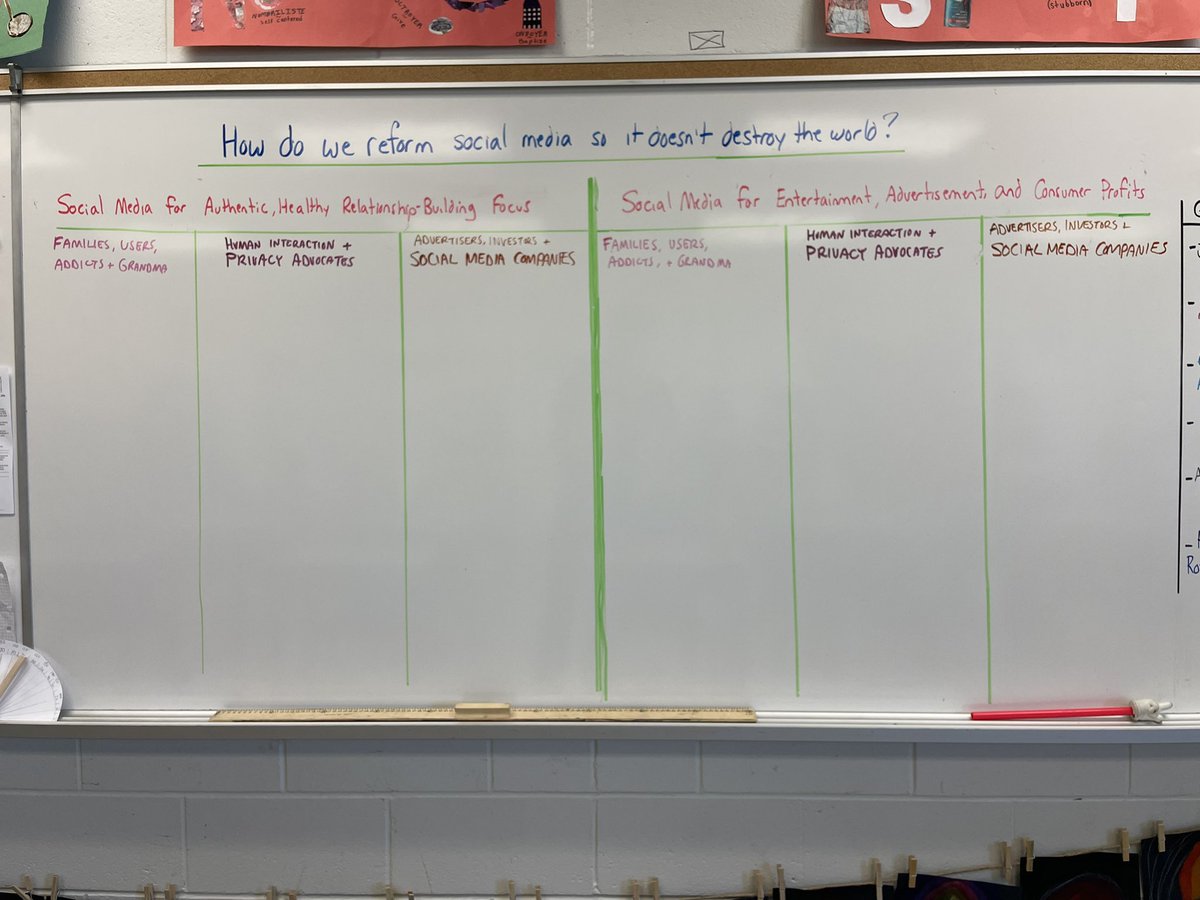 NOMBRILISTE
Self Centered
OCTROYER
Give
ONDOYER
Baptize
(stubborn)
How do we reform social media so it doesn't destroy the world?
Social Media for Authentic, Healthy Relationship-Building Focus
FAMILIES, USERS,
ADDICTS + GRANDMA
HUMAN INTERACTION +
PRIVACY ADVOCATES
ADVERTISERS, INVESTORS +
SOCIAL MEDIA COMPANIES
Social Media for Entertainment, Advertisement, and Consumer Profits
FAMILIES, USERS,
ADDICTS, + GRANDMA
HUMAN INTERACTION +
PRIVACY ADVOCATES
ADVERTISERS, INVESTORS +
SOCIAL MEDIA COMPANIES